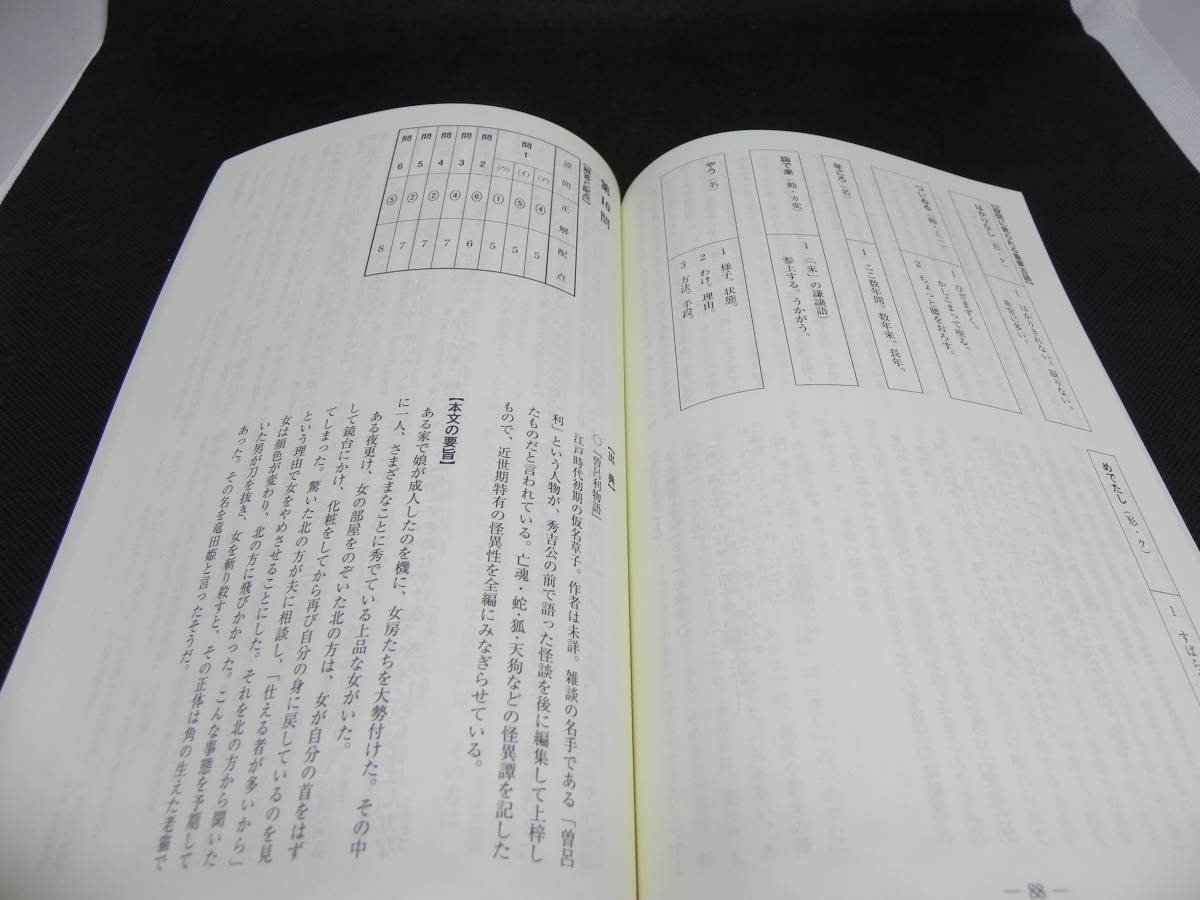 【設問に見られる重要古語】
はかりなし（形・ク）
1 はかりきれない。限りない。
非常に多い。
ついゐる（動・上一）
1 ひざまずく。
かしこまって座る。
2 ちょっと腰をおろす。
年ごろ（名）
1 ここ数年間。数年来。長年。
詣で来（動・カ変）
1 （「来」の謙譲語）
参上する。うかがう。
やう（名）
1 様子。状態。
2 わけ。理由。
3 方法。手段。
めでたし（形・ク）
1 すばら
― 88 ―
第10問
【解答と配点】
設問 正解 配点
問1 (ア) ④ 5
(イ) ⑤ 5
(ウ) ① 5
問2 ④ 6
問3 ⑥ 7
問4 ② 7
問5 ② 7
問6 ⑤ 8
【出典】
○『曽呂利物語』
江戸時代初期の仮名草子。作者は未詳。雑談の名手である「曽呂
利」という人物が、秀吉公の前で語った怪談を後に編集して上梓し
たものだと言われている。亡魂・蛇・狐・天狗などの怪異譚を記した
もので、近世期特有の怪異性を全編にみなぎらせている。
【本文の要旨】
ある家で娘が成人したのを機に、女房たちを大勢付けた。その中
に一人、さまざまなことに秀でている上品な女がいた。
ある夜更け、女の部屋をのぞいた北の方は、女が自分の首をはず
して鏡台にかけ、化粧をしてから再び自分の身に戻しているのを見
てしまった。驚いた北の方が夫に相談し、「仕える者が多いから」
という理由で女をやめさせることにした。それを北の方から聞いた
女は顔色が変わり、北の方に飛びかかった。こんな事態を予期して
いた男が刀を抜き、女を斬り殺すと、その正体は角の生えた老猫で
あった。その名を竜田姫と言ったそうだ。